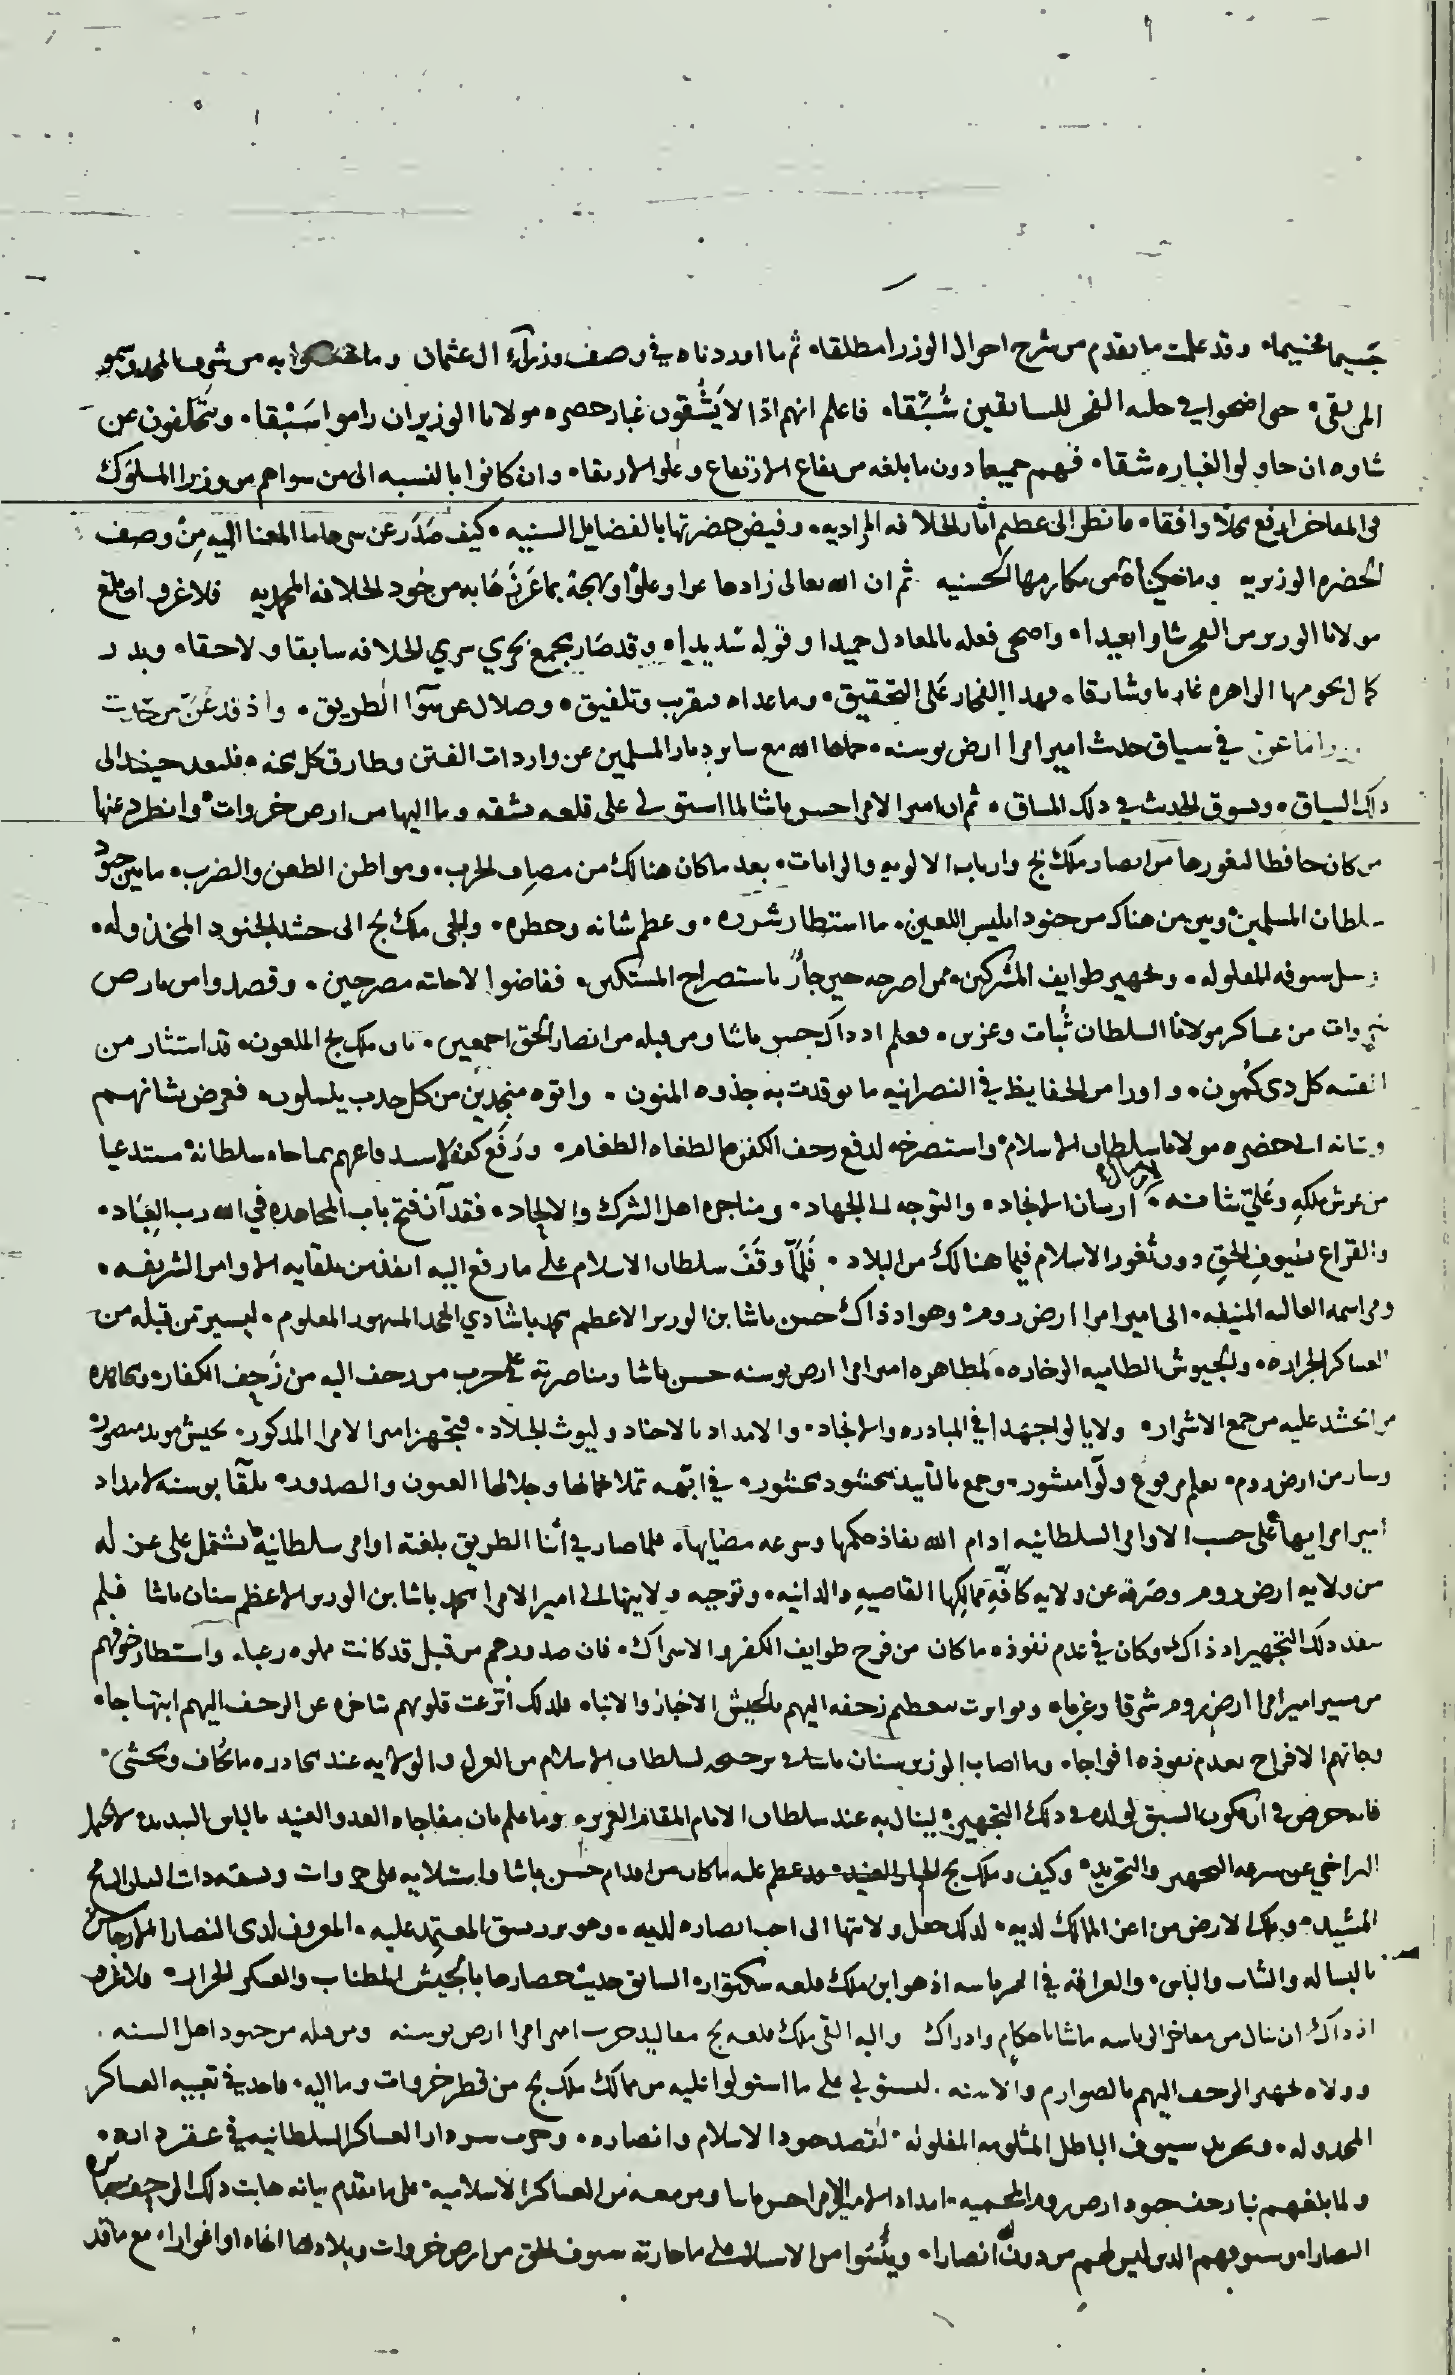 جسيما مخيما وقد علمت ما تقدم من شرح احوال الوزرا مطلقا ثم ما اوردناه في وصف وزرآء ال عثمان وما به من شرف المجد وسمو
المرتقى حتى اضحوا في حلبه الفخر للسابقين سُبَّقا فاعلم انهم اذًا لا يَشُقون غبار حضره مولانا الوزير ان راموا سَبْقا ويتخلفون عن
شاوه ان حاولوا لغباره شقا فهم جميعا دون ما بلغه من يفاع الارتفاع وعلو الارتقا وان كانوا بالنسبه الى من سواهم من وزرا الملوك
في المفاخر ارفع محلا وافقا فانظر الى عظيم اثار الخلافه المراديه وفيض حضرتها بالفضايل السنيه كيف صَدَر عن سرها ما المعنا اليه مِنْ وصف
الحضره الوزيريه وما حكيناه من مكارمها الحسنيه ثم ان الله تعالى زادها عزا وعلوًا وبهجة بما عَزَّزَهَا به من جُود الخلافه المحمديه فلا غرو ان بلغ
مولانا الوزير من الفخر شاوا بعيدا واضحى فعله بالمعادل حميدا وقوله سَديدا وقد صَار بمجمع بحري سري الخلافه سابقا ولاحقا وبدر
كمال نجومها الزاهره غاربا وشارقا فهذا الفخار على التحقيق وما عداه تقريب وتلفيق وضلال عن سَوآ الطريق واذ قد
في سياق حديث امير امرا ارض بوسنه حماها الله مع ساير ديار المسلمين عن واردات الفتن وطارق كل محنه فلنعد حينيذ الى
ذلك السياق ونسوق الحديث في ذلك المساق ثم ان امير الامرا حسن باشا لما استولى على قلعه بشقه وما اليها من ارض خروات وانطرد عنها
من كان حافظا لثغورها من انصار ملك بج وارباب الالويه والرايات بعد ما كان هنالك من مصاف الحرب ومواطن الطعن والضرب ما بين جنود
سلطان المسلمين وبين من هناك من جنود ابليس اللعين ما استطار شرره وعظم شانه وخطره والجى ملك بج الى حشد الجنود المخذوله
وسل سيوفه المفلوله وتجهيز طوايف المشركين ممن اصرخه حين جارَ باستصراخ المستكين ففاضوا لاغاثته مصرخين وقصدوا من بارض
خروات من عساكر مولانا السلطان ثُبات وعزين فعلم اذ ذاك حسن باشا ومن قبله من انصار الحق اجمعين بان ملك بج الملعون قد استثار من
الفتنه كل ذي كمون واورا من الحفايظ في النصرانيه ما توقدت به جذوه المنون واتوه منجدين من كل حدب ينسلون فعرض شانهم
وشانه الى حضره مولانا سلطان الاسلام واستصرخه لدفع زحف الكفره الطغاه الطغام ودَفَع كفه مستدعيا
من عرش ملكه وعَليّ شانه ارسال الانجاد والتوجه الى الجهاد ومناجزه اهل الشرك والالحاد فقد آن فتح باب المجاهده في الله رب العباد
والقراع بسيوف الحق دون ثغور الاسلام فيما هنالك من البلاد فَلمّا وقَفَ سلطان الاسلام على ما رفع اليه انفذ من تلقايه الاوامر الشريفه
ومراسمه العاليه المنيفه الى امير امرا ارض روم وهو اذ ذاك حسن باشا بن الوزير الاعظم محمد باشا ذي المجد المشهور المعلوم ليسير من قبله من
العساكر الجراره والجيوش الطاميه الزخاره لمظاهره امير امرا ارض بوسنه حسن باشا ومناصرته على حرب من زحف اليه من زحف الكفار ومجاهده
من احتشد عليه من جمع الاشرار ولا يالوا جهدا في المبادره والانجاد والامداد بالاجناد وليوث الجلاد فتجهز امير الامرا المذكور بجيش مويد منصور
وسار من ارض روم بعلم مرفوع ولوآ منشور وجمع بالتاييد محشود محشور في ابّهه تملا بجمالها وجلالها العيون والصدور تلقآ بوسنه لامداد
امير امرايها على حسب الاوامر السلطانيه ادام الله نفاذ حكمها وسرعه مضايها فلما صار في اثنا الطريق بلغته اوامر سلطانية تشتمل على عزله
من ولايه ارض روم وصَرفه عن ولايه كافّهِ ممالكها القاصيه والدانيه وتوجيه ولايتها الى امير الامرا محمد باشا بن الوزير الاعظم سنان باشا فلم
ينفذ ذلك التجهيز اذ ذاك وكان في عدم نفوذه ما كان من فرح طوايف الكفر والاشراك فان صدورهم من قبل قد كانت مملوه رعبا واستطار خوفهم
من مسير امير امرا ارض روم شرقا وغربا وتواترت بعظيم زحفه اليهم بالجيش الاخبار والانباه فلذلك اترعت قلوبهم بتاخره عن الزحف اليهم ابتهاجا
وجاتهم الافراح بعدم نفوذه افواجا وما اصاب الوزير سنان باشا في ترجيحه لسلطان الاسلام من العزل والولايه عند محاذره ما يُخاف ويخشى
فانه حرص في ان يكون السبق لولده في ذلك التجهيز لينال به عند سلطان الانام المقام العزيز وما علم بان مفاجاه العدو العنيد بالباس الشديد لا يحتمل
التراخي عن سرعه التجهيز والتجريد وكيف وملك بج قد عظم عليه ما كان من اقدام حسن باشا واستيلايه على خروات وبشقه ذات البنيان
المشيد وتلك الارض من اعز الممالك لديه لذلك جعل ولايتها الى احب انصاره اليه وهو المعتمد عليه المعروف لدى النصارا
بالبساله والثبات والباس والعراقه في الرياسه اذ هو ابن ملك قلعه سكتوار السابق حديث حصارها بالجيش المطناب والعسكر الجرار فلا غرو
اذ ذاك ان نال من مفاخر الرياسه ما شا باحكام وادراك واليه القى ملك قلعه بج مقاليد حرب امير امرا ارض بوسنه ومن قبله من جنود اهل السنه
وولاه تجهيز الزحف اليهم بالصوارم والاسنه ليستولي على ما استولوا عليه من ممالك ملك بج من قطر خروات وما اليه فاخذ في تعبيه العساكر
المخذوله وتجريد سيوف الباطل المثلومه المفلوله لقصد جنود الاسلام وانصاره وحرب سردار العساكر السلطانيه في عقر داره
ولما بلغهم نبا زحف جنود ارض روم المحميه امداد امير الامرا حسن باشا ومن معه من العساكر الاسلاميه على ما تقدم بيانه هابت ذلك الزحف
النصارا وسيوفهم الذين ليس لهم من دون الله انصارا ويئسوا من الاستيلا على ما حازته سيوف الحق من ارض خروات وبلادها انجادا واغوارا مع ما قد